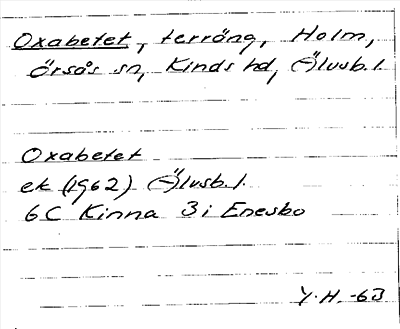 Oxabetet, terräng, Holm,
Örsås sn, Kinds hd, (-)Älvsb. l.
Oxabetet
ek (1962) (-)Älvsb. l.
6C Kinna 3i Enesbo
Y.H. -63